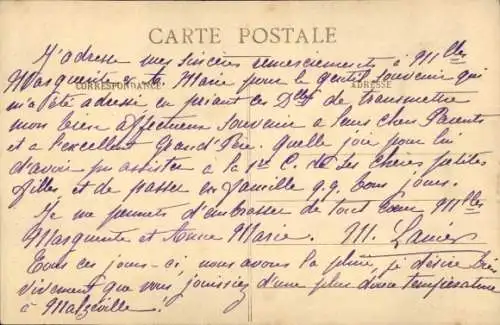 CARTE POSTALE
CORRESPONDANCE
ADRESSE
J'adresse mes sincères remerciements à Mlles
Marguerite et A. Marie pour le gentil souvenir qui
m'a été adressé en priant ces Dlles de transmettre
mon bien affectueux souvenir à leurs chers Parents
et à l'excellent Grand'Père. Quelle joie pour lui
d'avoir pu assister à la 1re C. de ses chères petites
filles et de passer en famille q.q. bons jours.
Je me permets d'embrasser de tout cœur Mlles
Marguerite et Anne Marie. M.
Tous ces jours-ci, nous avons la pluie, je désire bien
vivement que vous jouissiez d'une plus douce température
à Malzéville!